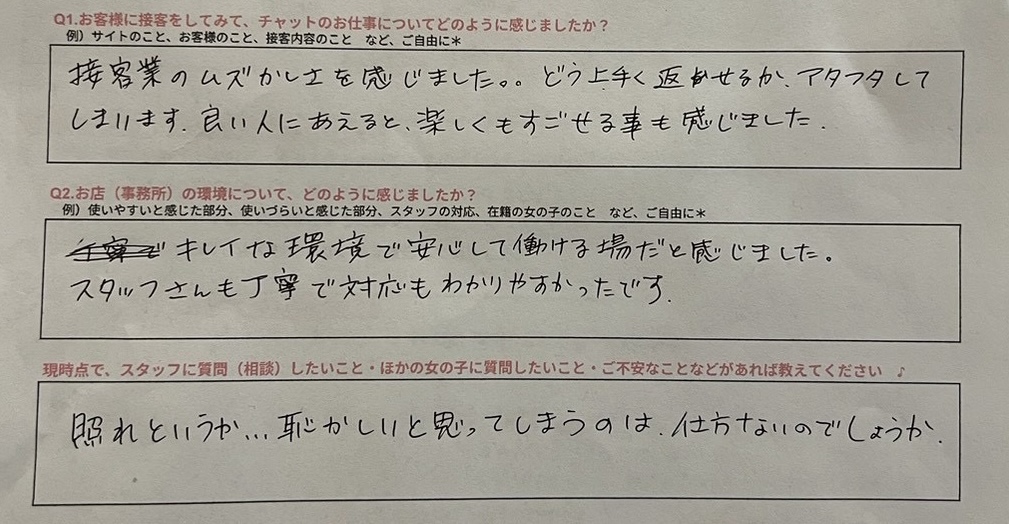 Q1.お客様に接客をしてみて、チャットのお仕事についてどのように感じましたか？
例）サイトのこと、お客様のこと、接客内容のこと　など、ご自由に＊
接客業のムズかしさを感じました。。どう上手く返かせるか、アタフタして
しまいます。良い人にあえると、楽しくもすごせる事も感じました。
Q2.お店（事務所）の環境について、どのように感じましたか？
例）使いやすいと感じた部分、使いづらいと感じた部分、スタッフの対応、在籍の女の子のこと　など、ご自由に＊
キレイな環境で安心して働ける場だと感じました。
スタッフさんも丁寧で対応もわかりやすかったです。
現時点で、スタッフに質問（相談）したいこと・ほかの女の子に質問したいこと・ご不安なことなどがあれば教えてください　♪
照れというか…恥かしいと思ってしまうのは、仕方ないのでしょうか。